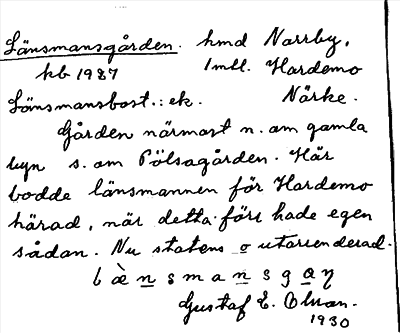 Länsmansgården. hmd Norrby,
hb 1987 1 mtl. Hardemo
Länsmansbost.: ek. Närke.
Gården närmast n. om gamla
byn s. om Pölsagården. Här
bodde länsmannen för Hardemo
härad, när detta förr hade egen
sådan. Nu statens o utarrenderad.
l ὰ n s m a n s g
Gustaf E. Olsson.
1930